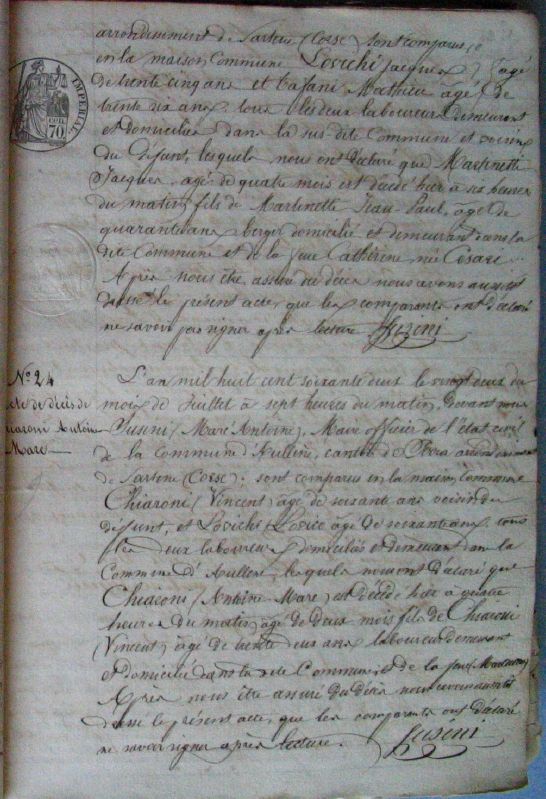 arrondissement de Sartene (Corse) sont comparus,
en la maison Commune Lovichi Jacques agé
de trente cinq ans et Tafani Mathieu agé de
trente six ans, tous les deux laboureurs demeurant
et domiciliés dans la sus dite Commune et voisins
du défunt, lesquels nous ont déclaré que Martinetti
Jacques, agé de quatre mois est décédé hier à six heures
du matin, fils de Martinetti Jean Paul, âgé de
quarante ans berger domicilié et demeurant dans la
dite Commune et de la feue Catherine née Cesari.
Après nous être assuré du décès nous avons aussitôt
dressé le présent acte, que les comparants ont déclaré
ne savoir pas signer après lecture Susini
IMPÉRIAL
70
N° 24
acte de décès de
Chiaroni Antoine
Marc
L'an mil huit cent soixante deux le vingt deux du
mois de Juillet à sept heures du matin, devant nous
Susini (Marc Antoine), Maire officier de l'état civil
de la Commune d'Aullène, canton de Serra arrondissement
de Sartene (Corse); sont comparus en la maison Commune
Chiaroni (Vincent) âgé de soixante ans voisin du
défunt, et Lovichi âgé de soixante ans, tous
les deux laboureurs domiciliés et demeurant dans la
Commune d'Aullène, lesquels nous ont déclaré que
Chiaroni (Antoine Marc) est décédé hier à quatre
heures du matin, âgé de deux mois fils de Chiaroni
(Vincent) âgé de trente deux ans laboureur demeurant
et domicilié dans la dite Commune, et de la
Après nous être assuré du décès nous avons aussitôt
dressé le présent acte, que les comparants ont déclaré
ne savoir signer après lecture. Susini